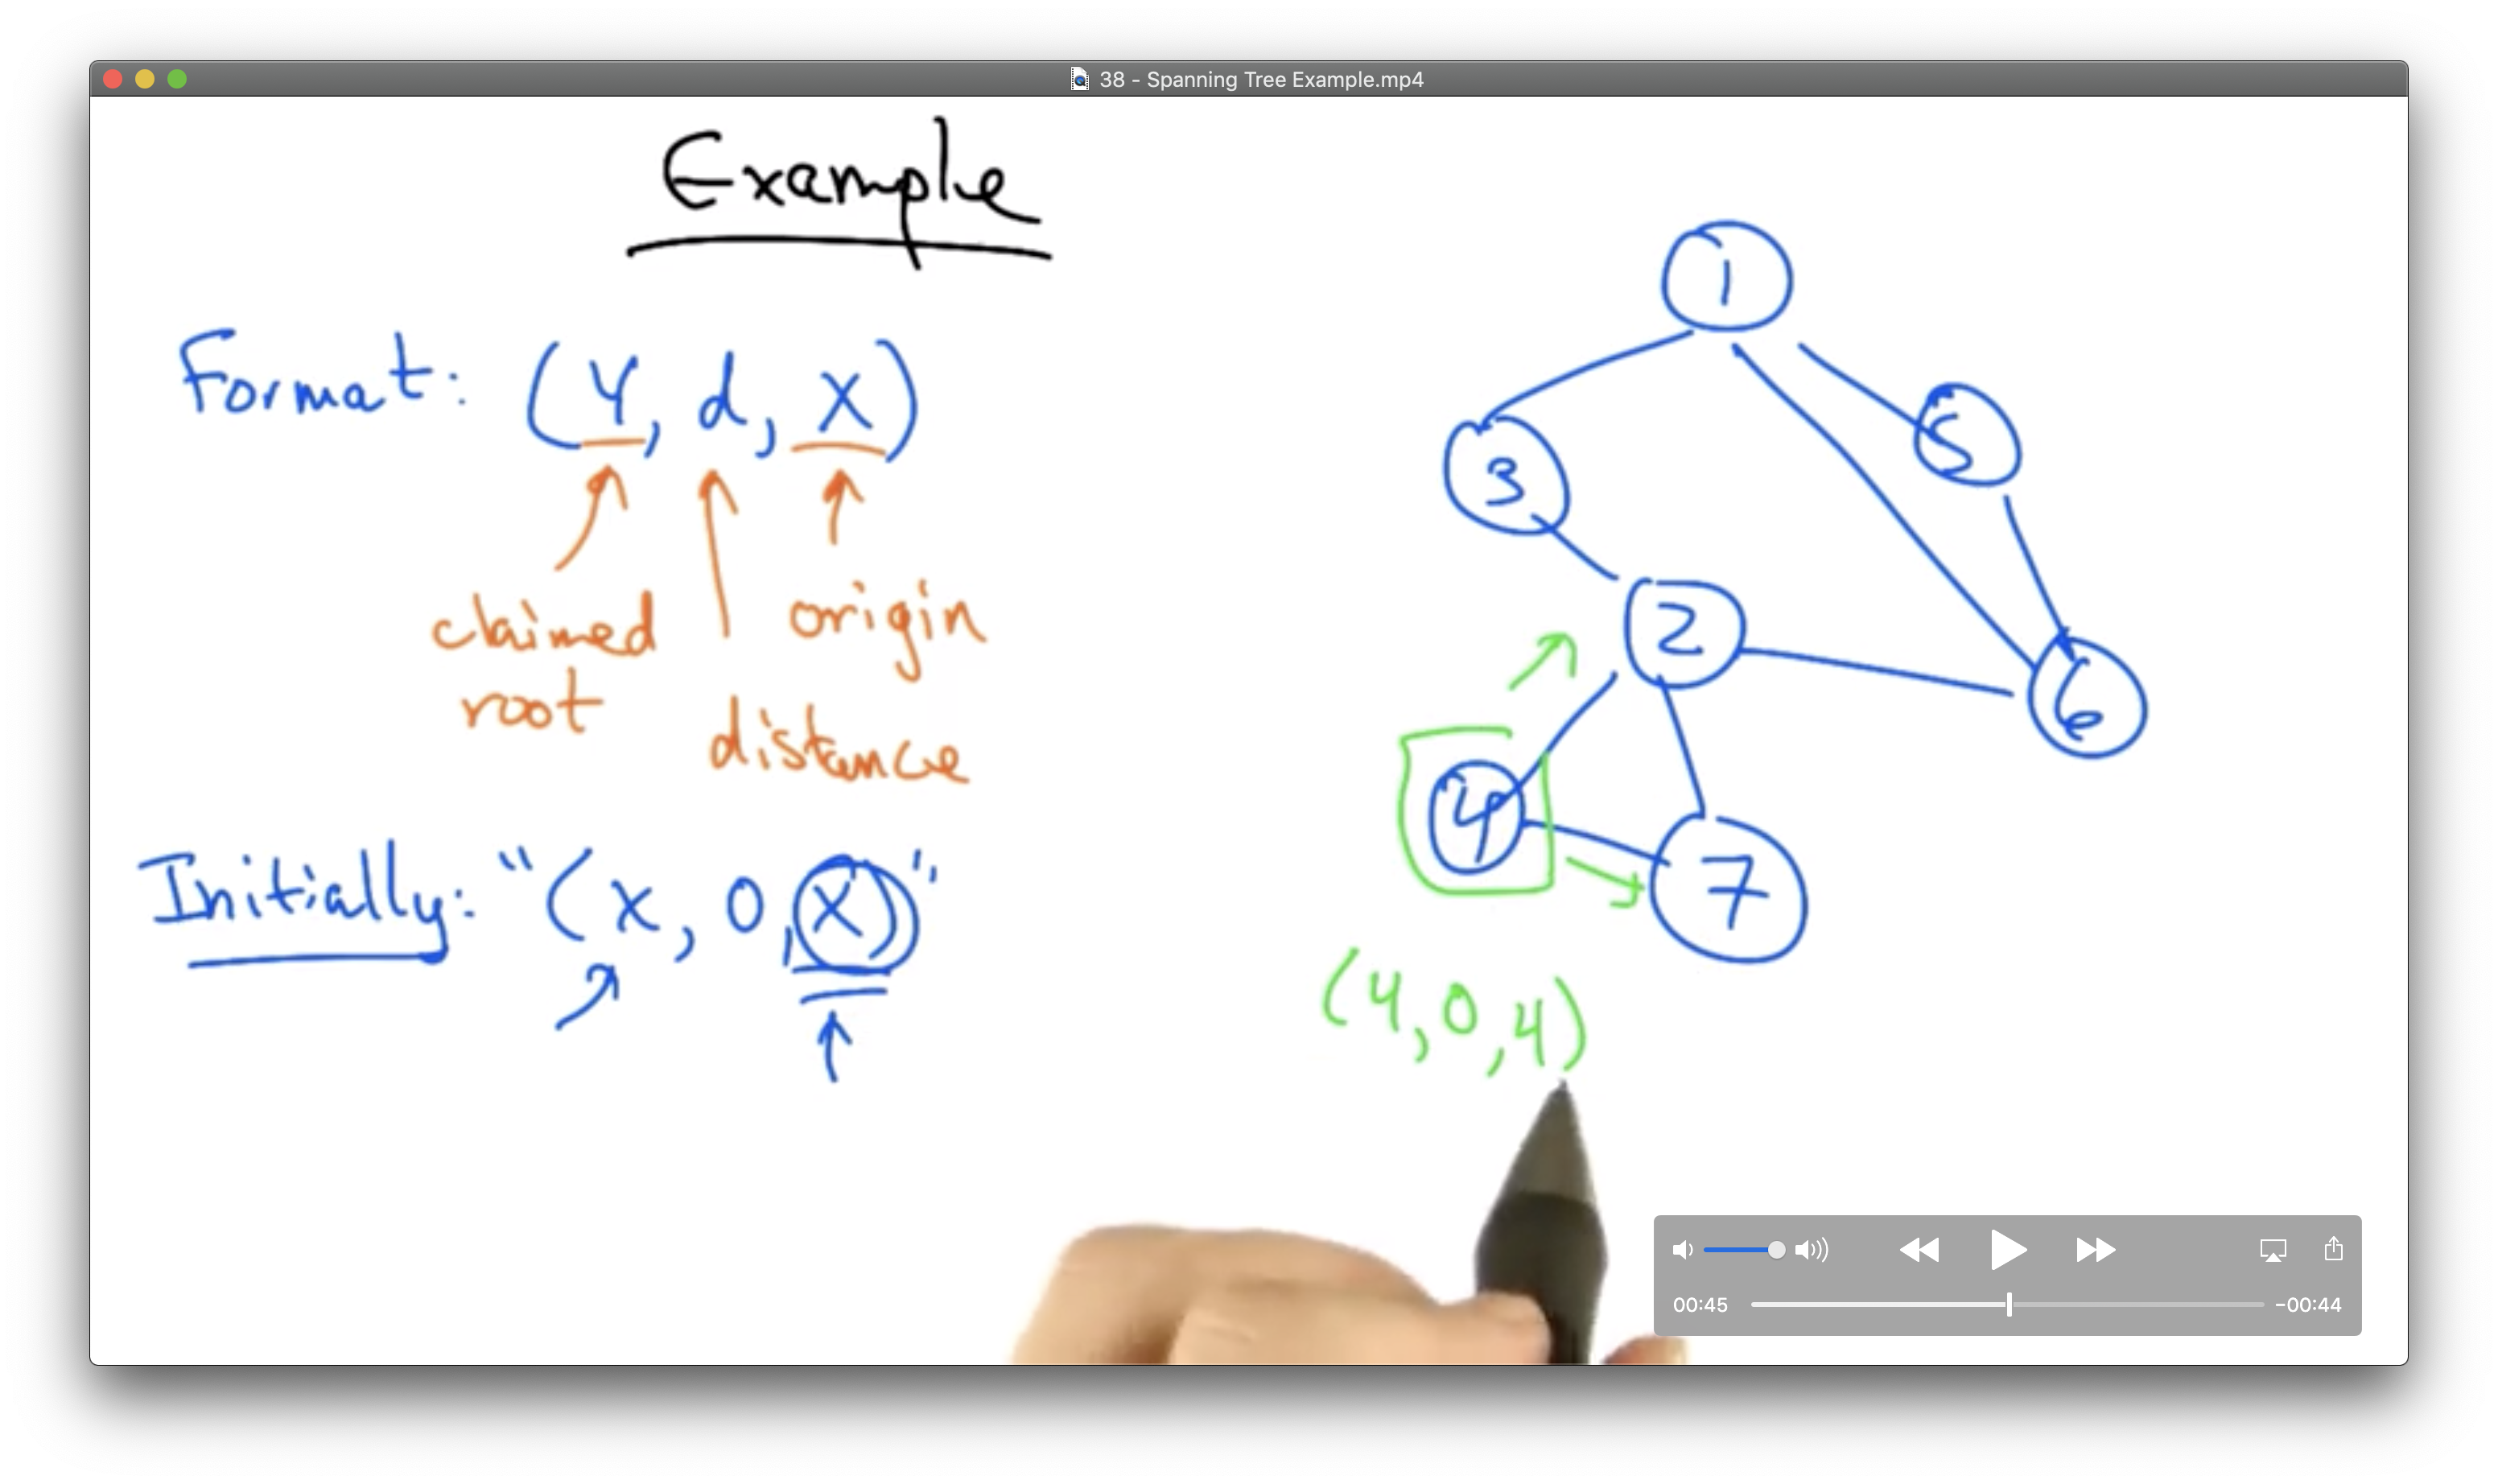 38 - Spanning Tree Example.mp4
Example
Format: (Y, d, X)
claimed root
origin
distance
Initially: "(x, 0, X)"
1
3
5
2
6
4
7
(4,0,4)
00:45
-00:44